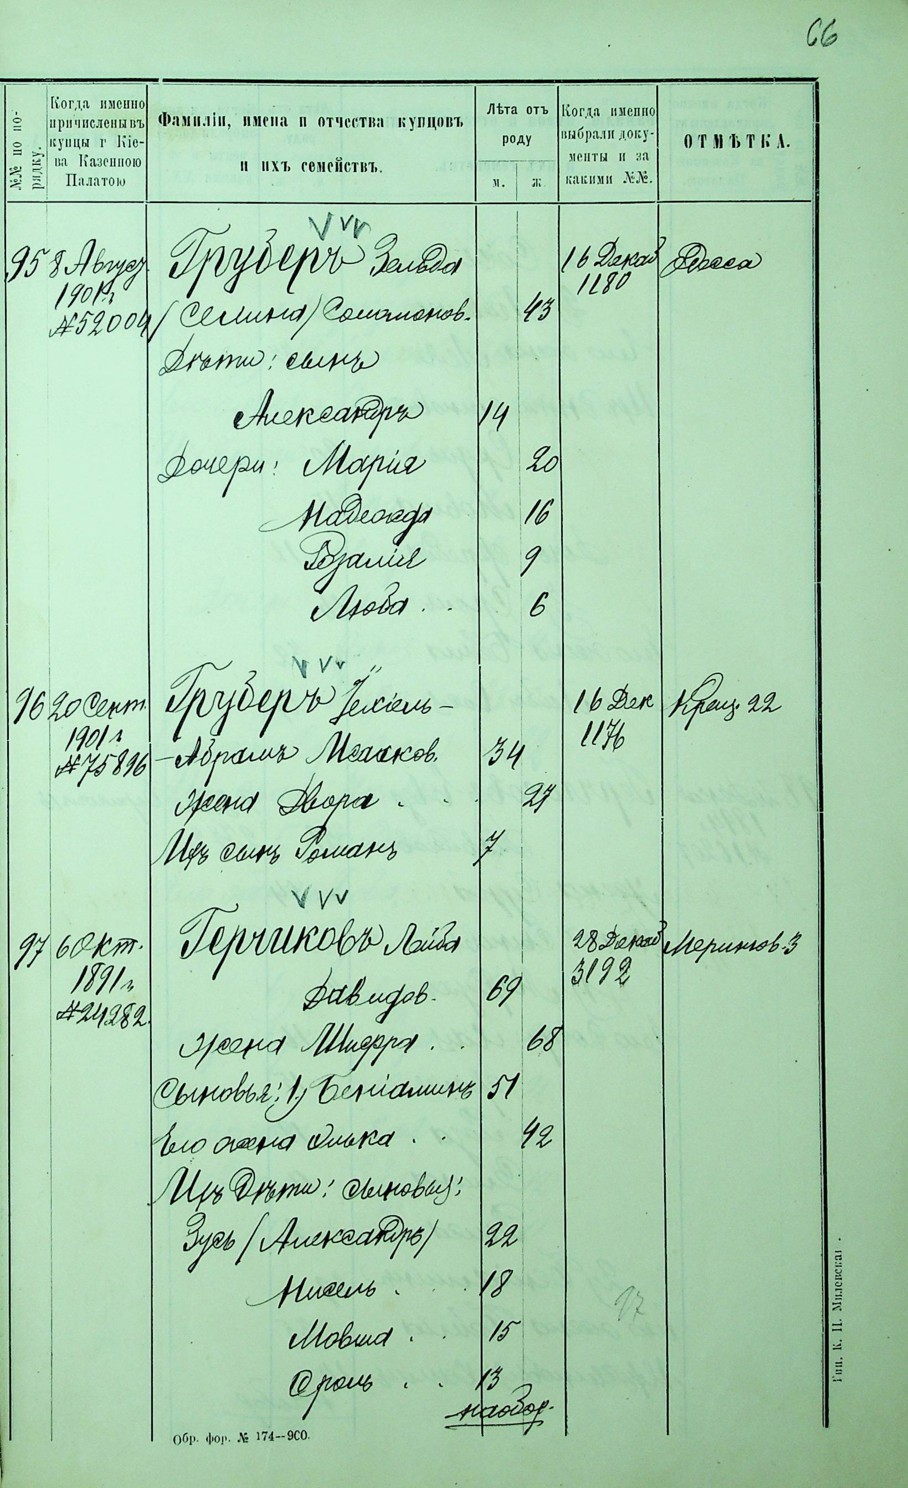 66
№№ по по-
рядку.
Когда именно
причислены въ
купцы г Кіе-
ва Казенною
Палатою
Фамиліи, имена и отчества купцовъ
и ихъ семействъ.
Лѣта отъ
роду
м. ж
Когда именно
выбрали доку-
менты и за
какими №№.
ОТМѢТКА.
95 8 Август. Груберъ Зельда 16 Декаб Одесса
1901 г. 1180
№52004 (Селина) Соломонов. 43
Дѣти: сынъ
Александръ 14
Дочери: Марія 20
Надежда 16
Розалія 9
Люба . . 6
96 20 Сент. Груберъ Іехіель- 16 Дек Крещ. 22
1901 г 1176
№75896 -Абрамъ Исааков. 34
жена Двора . . . 27
Ихъ сынъ Романъ 7
97 6 Окт. Герчиковъ Лейба 28 Декаб Мерингов. 3
1891 г. 3192
№24282. Давидов. 69
жена Шифра . . 68
Сыновья: 1) Беніаминъ 51
Его жена Элька . . 42
Ихъ дѣти: сыновья:
Зусь (Александръ) 22
Нисель . . . 18
97
Мовша . . 15
Сроль . . 13
наобор.
Обр. фор. № 174--900.
Тип. К. Н. Милевскаг .